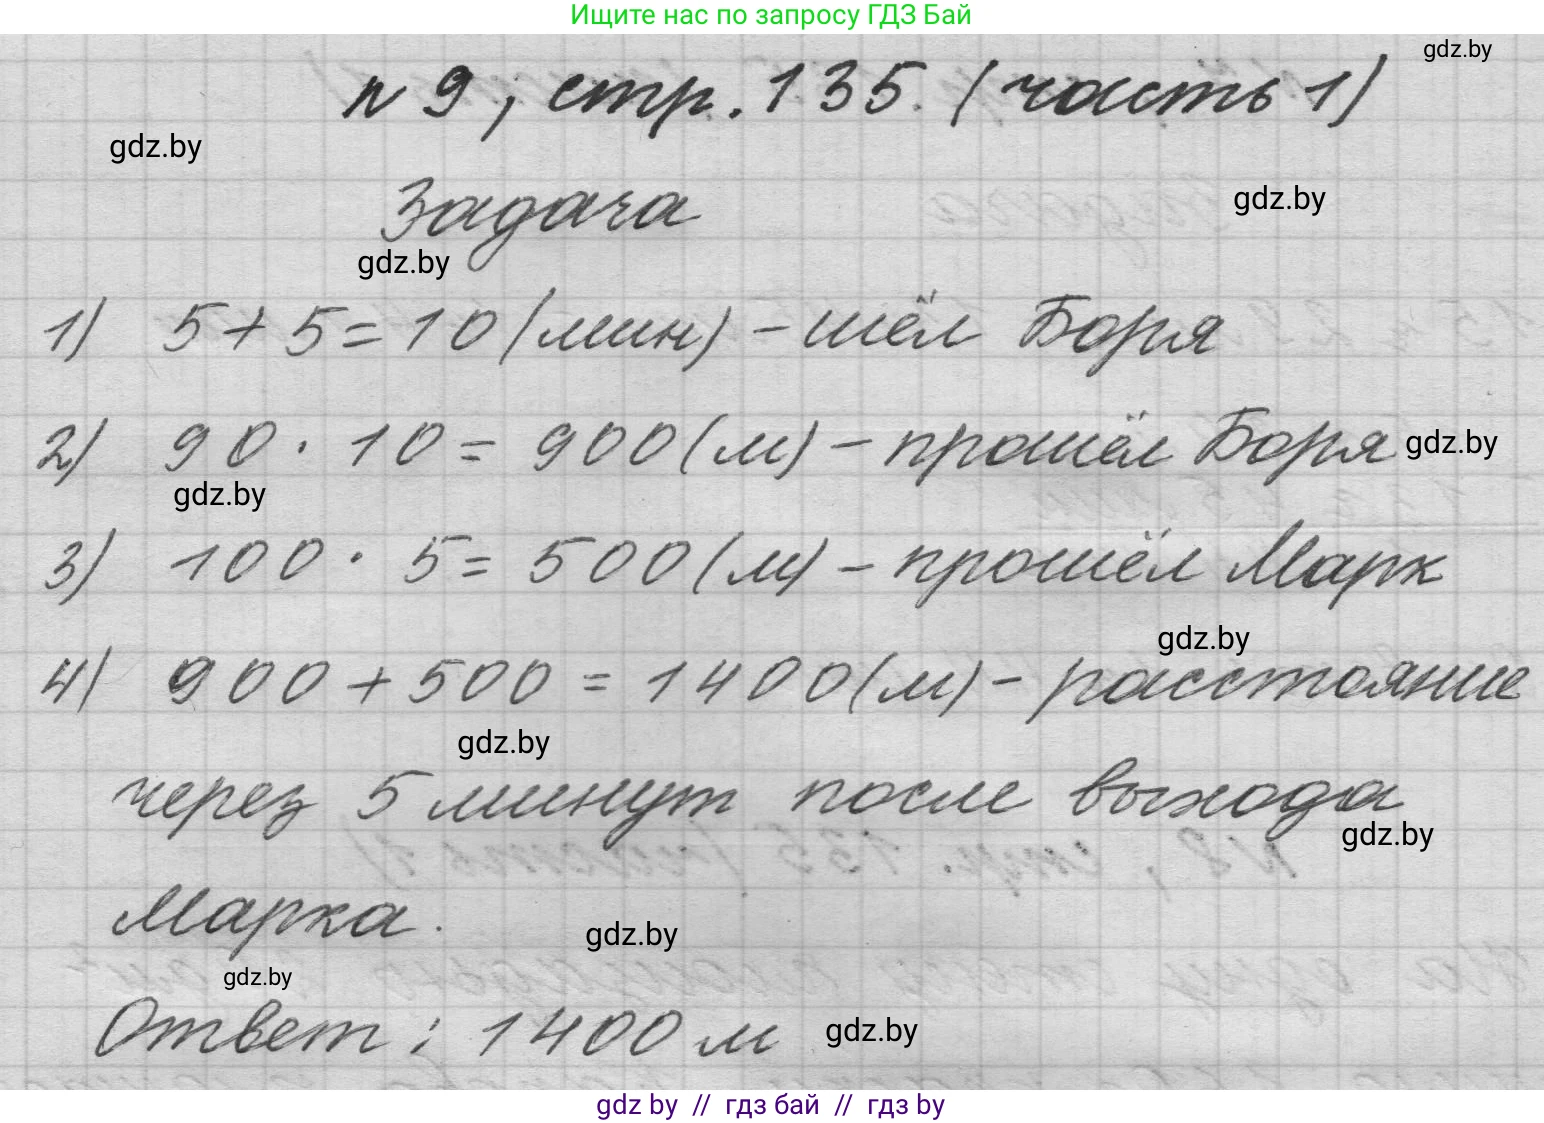 Ищите нас по запросу ГДЗ Бай
gdz.by
n 9, стр. 135. (часть 1)
gdz.by
Задача
gdz.by
gdz.by
1) 5 + 5 = 10 (мин) - шёл Боря
2) 90 · 10 = 900 (м) - прошёл Боря gdz.by
gdz.by
3) 100 · 5 = 500 (м) - прошёл Марк
gdz.by
4) 900 + 500 = 1400 (м) - расстояние
gdz.by
через 5 минут после выхода
gdz.by
Марка.
gdz.by
gdz.by
Ответ: 1400 м gdz.by
gdz by // гдз бай // гдз by